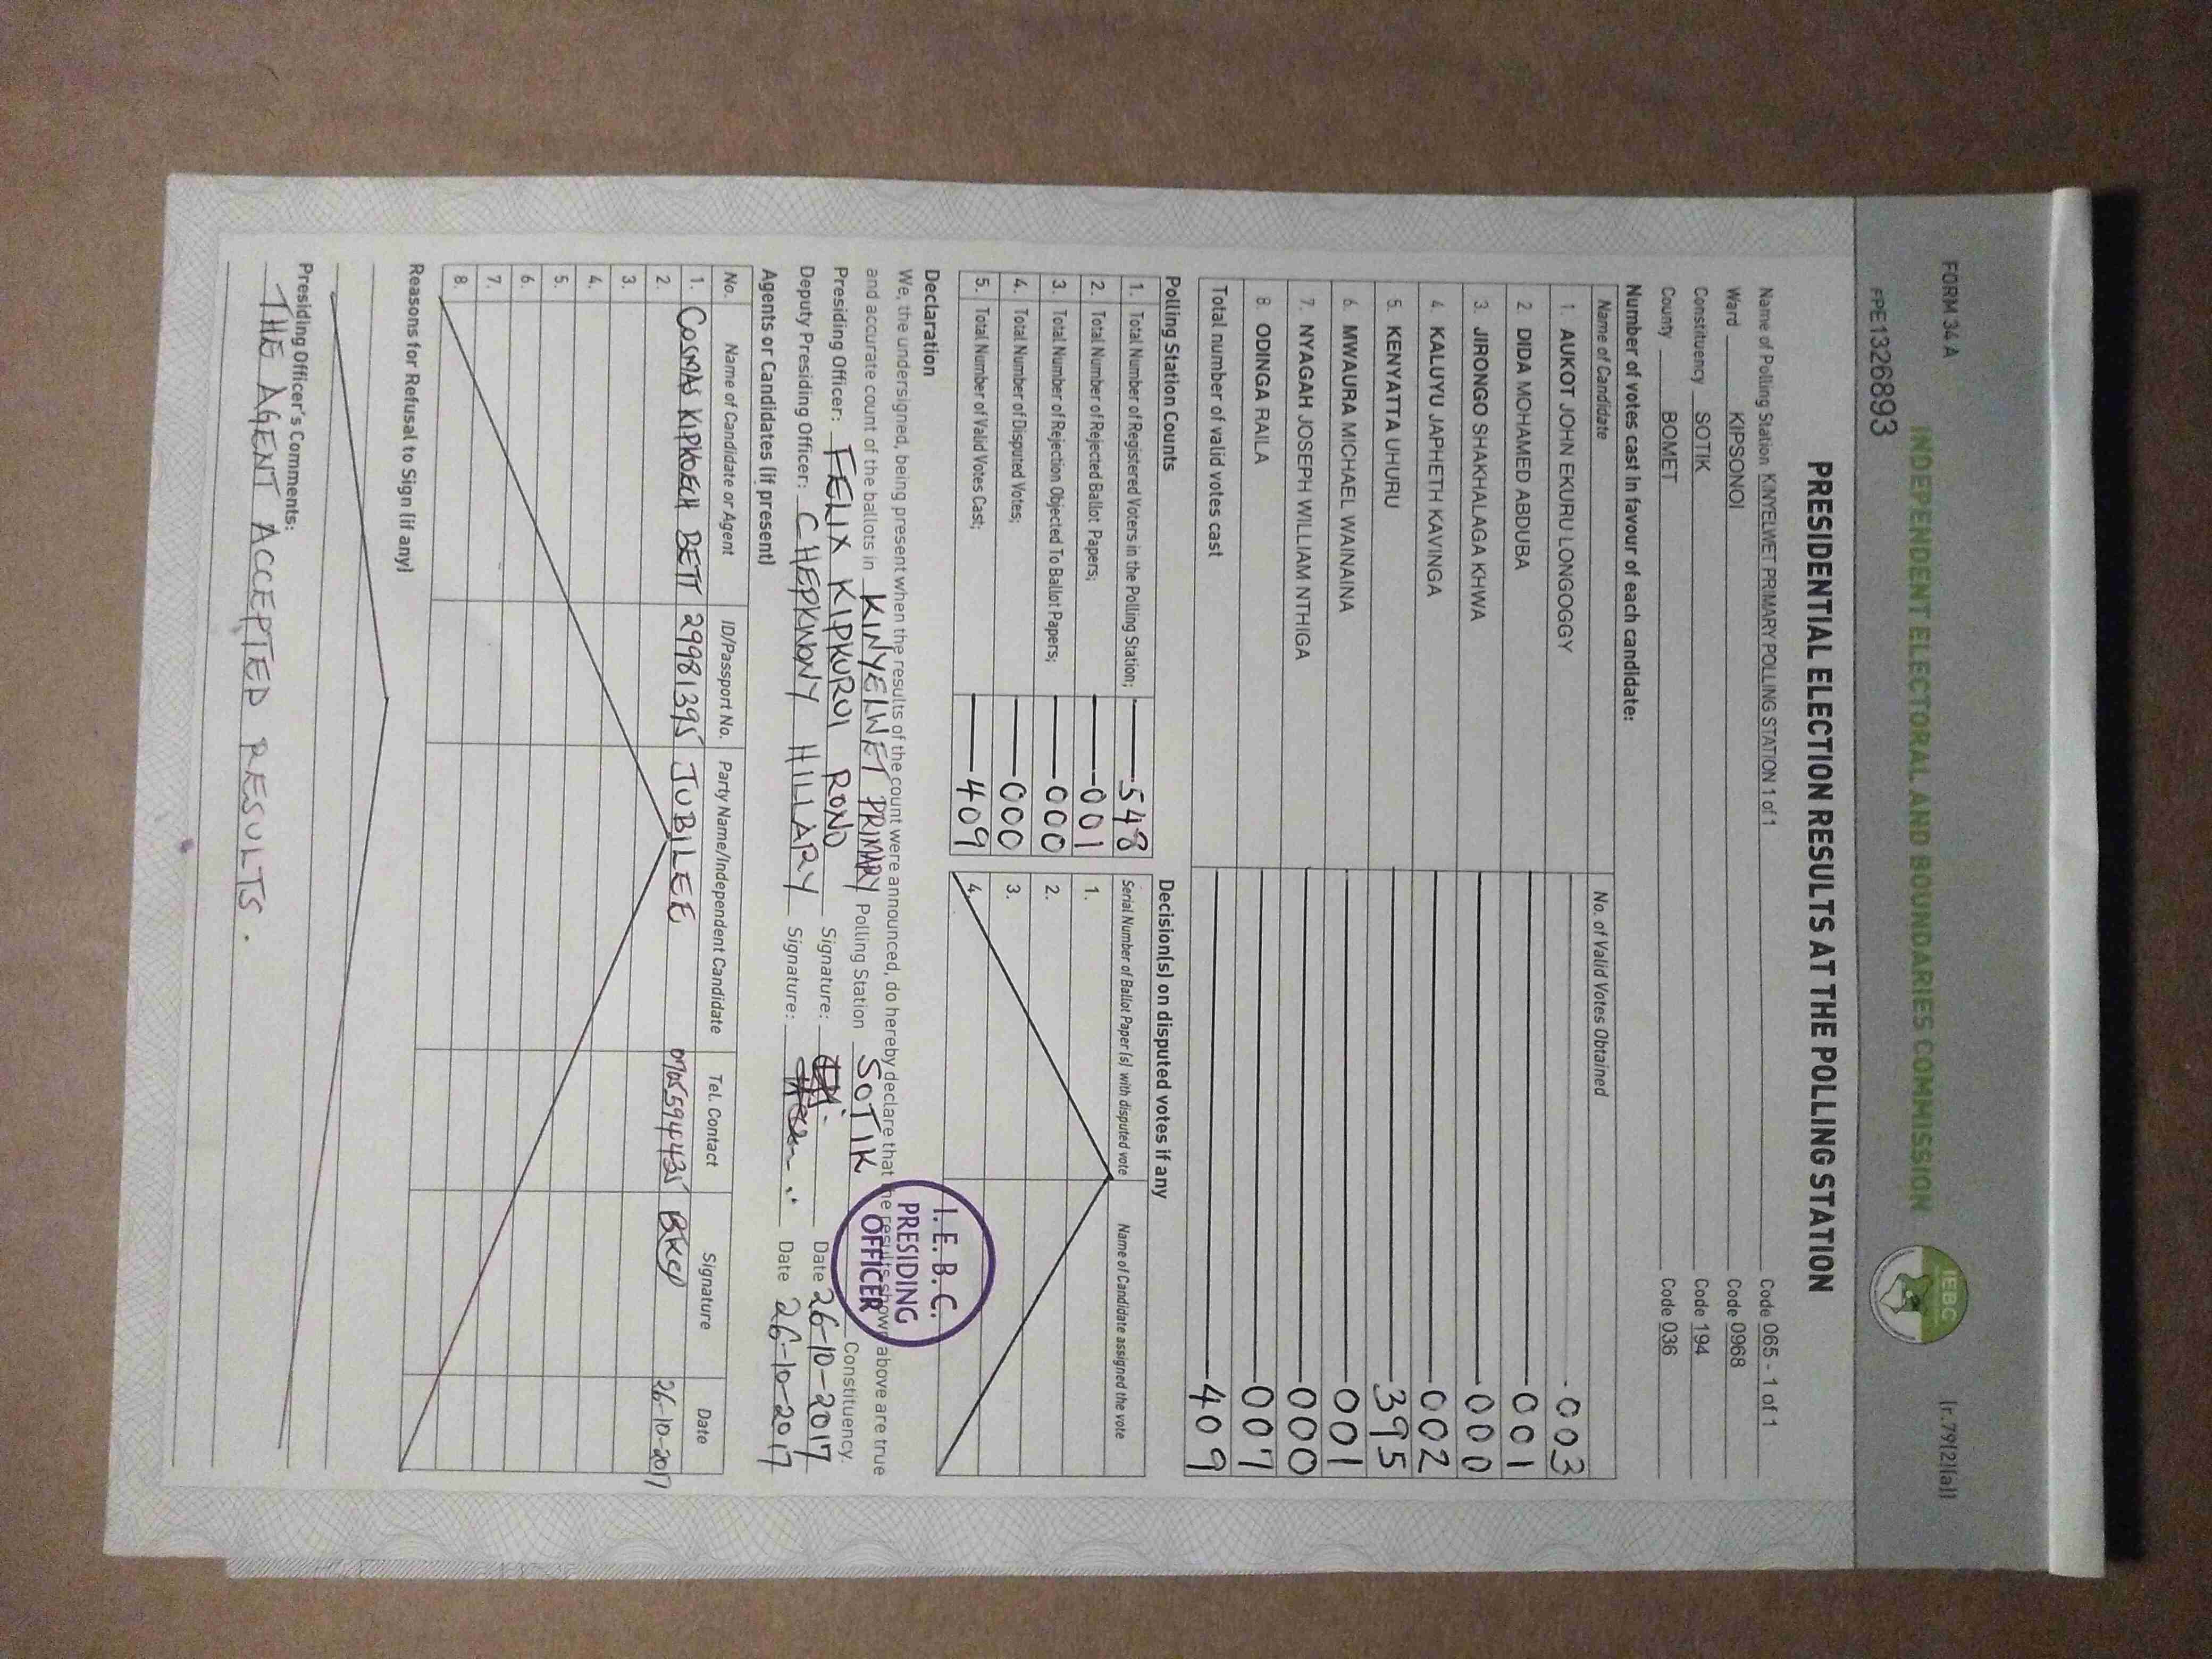 FORM 34A
[r.79(2)(a)]
INDEPENDENT ELECTORAL AND BOUNDARIES COMMISSION
IEBC
FPE1326893
PRESIDENTIAL ELECTION RESULTS AT THE POLLING STATION
Name of Polling Station KINYELWET PRIMARY POLLING STATION 1 of 1 Code 065 - 1 of 1
Ward KIPSONOI Code 0968
Constituency SOTIK Code 194
County BOMET Code 036
Number of votes cast in favour of each candidate:
Name of Candidate No. of Valid Votes Obtained
1. AUKOT JOHN EKURU LONGOGGY -003
2. DIDA MOHAMED ABDUBA 001
3. JIRONGO SHAKHALAGA KHWA 000
4. KALUYU JAPHETH KAVINGA 002
5. KENYATTA UHURU 395
6. MWAURA MICHAEL WAINAINA 001
7. NYAGAH JOSEPH WILLIAM NTHIGA 000
8. ODINGA RAILA 007
Total number of valid votes cast 409
Polling Station Counts
1. Total Number of Registered Voters in the Polling Station; 548
2. Total Number of Rejected Ballot Papers; 001
3. Total Number of Rejection Objected To Ballot Papers; 000
4. Total Number of Disputed Votes; 000
5. Total Number of Valid Votes Cast; 409
Decision(s) on disputed votes if any
Serial Number of Ballot Paper (s) with disputed vote Name of Candidate assigned the vote
1.
2.
3.
4.
Declaration
We, the undersigned, being present when the results of the count were announced, do hereby declare that the results shown above are true
and accurate count of the ballots in KINYELWET PRIMARY Polling Station SOTIK Constituency.
Presiding Officer: FELIX KIPKURUI RONO Signature: Date 26-10-2017
Deputy Presiding Officer: CHEPKWONY HILLARY Signature: Date 26-10-2017
I.E.B.C.
PRESIDING
OFFICER
Agents or Candidates (if present)
No. Name of Candidate or Agent ID/Passport No. Party Name/Independent Candidate Tel. Contact Signature Date
1. COSMAS KIPKOECH BETT 29981395 JUBILEE 0705594435 26-10-2017
2.
3.
4.
5.
6.
7.
8.
Reasons for Refusal to Sign (if any)
Presiding Officer's Comments:
THE AGENT ACCEPTED RESULTS.